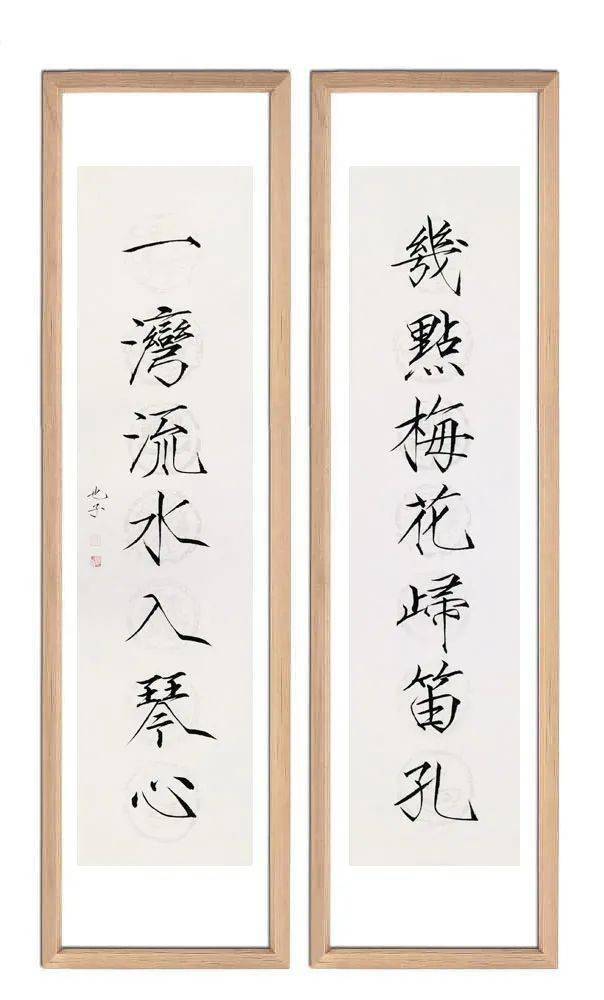 幾點梅花歸笛孔
一灣流水入琴心
也子